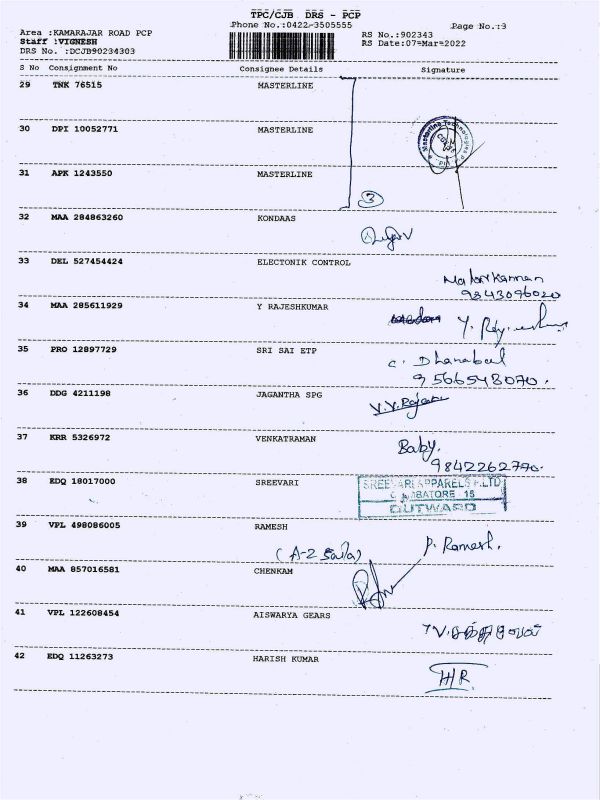 TPC/CJB DRS - PCP
Phone No.:0422-3505555
Page No.:3
Area :KAMARAJAR ROAD PCP
Staff :VIGNESH
DRS No. :DCJB90234303
RS No.:902343
RS Date:07-Mar-2022
S No Consignment No Consignee Details Signature
29 TNK 76515 MASTERLINE
30 DPI 10052771 MASTERLINE
31 APK 1243550 MASTERLINE
3
32 MAA 284863260 KONDAAS
33 DEL 527454424 ELECTONIK CONTROL
9843096020
34 MAA 285611929 Y RAJESHKUMAR
35 PRO 12897729 SRI SAI ETP
C. Dhanabal
9566548070.
36 DDG 4211198 JAGANTHA SPG
37 KRR 5326972 VENKATRAMAN
Baby.
9842262770.
38 EDQ 18017000 SREEVARI
SREEVARI APPARELS P.LTD
COIMBATORE 15
OUTWARD
39 VPL 498086005 RAMESH
P. Ramesh.
40 MAA 857016581 CHENKAM
41 VPL 122608454 AISWARYA GEARS
42 EDQ 11263273 HARISH KUMAR
HR.